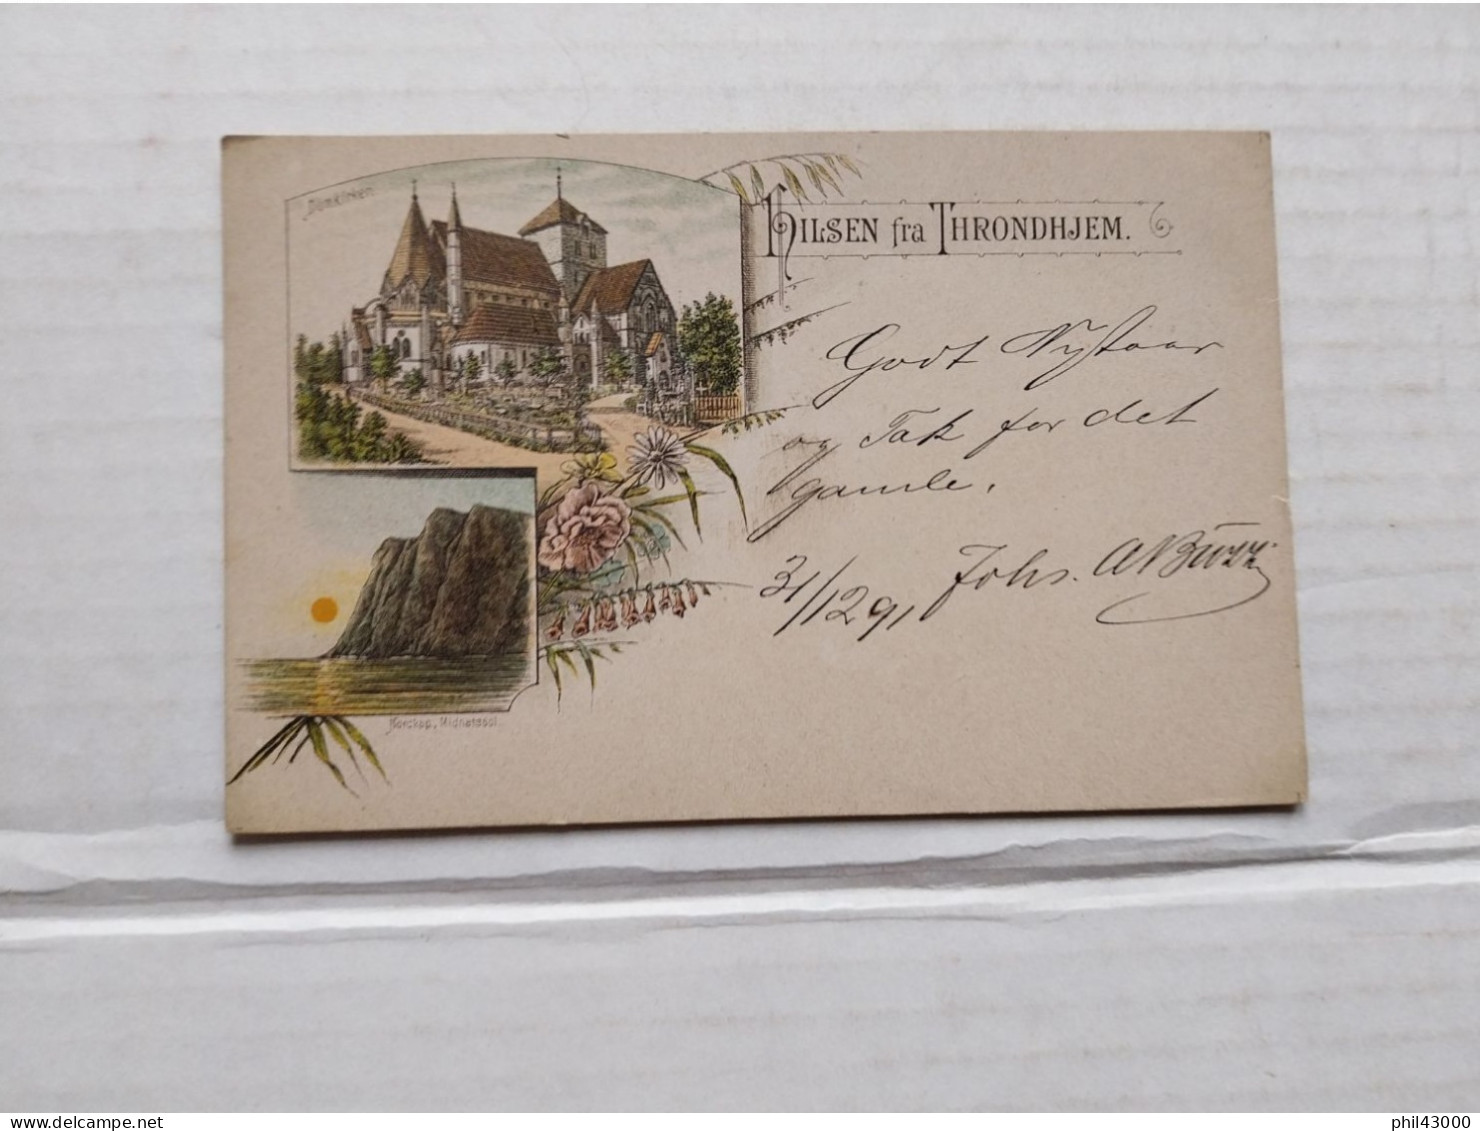 Domkirken
HILSEN fra THRONDHJEM.
Godt Nytaar
og Tak for det
gamle.
31/12 91 Johs.
Nordkap, Midnatssol
delcampe.net
phil43000